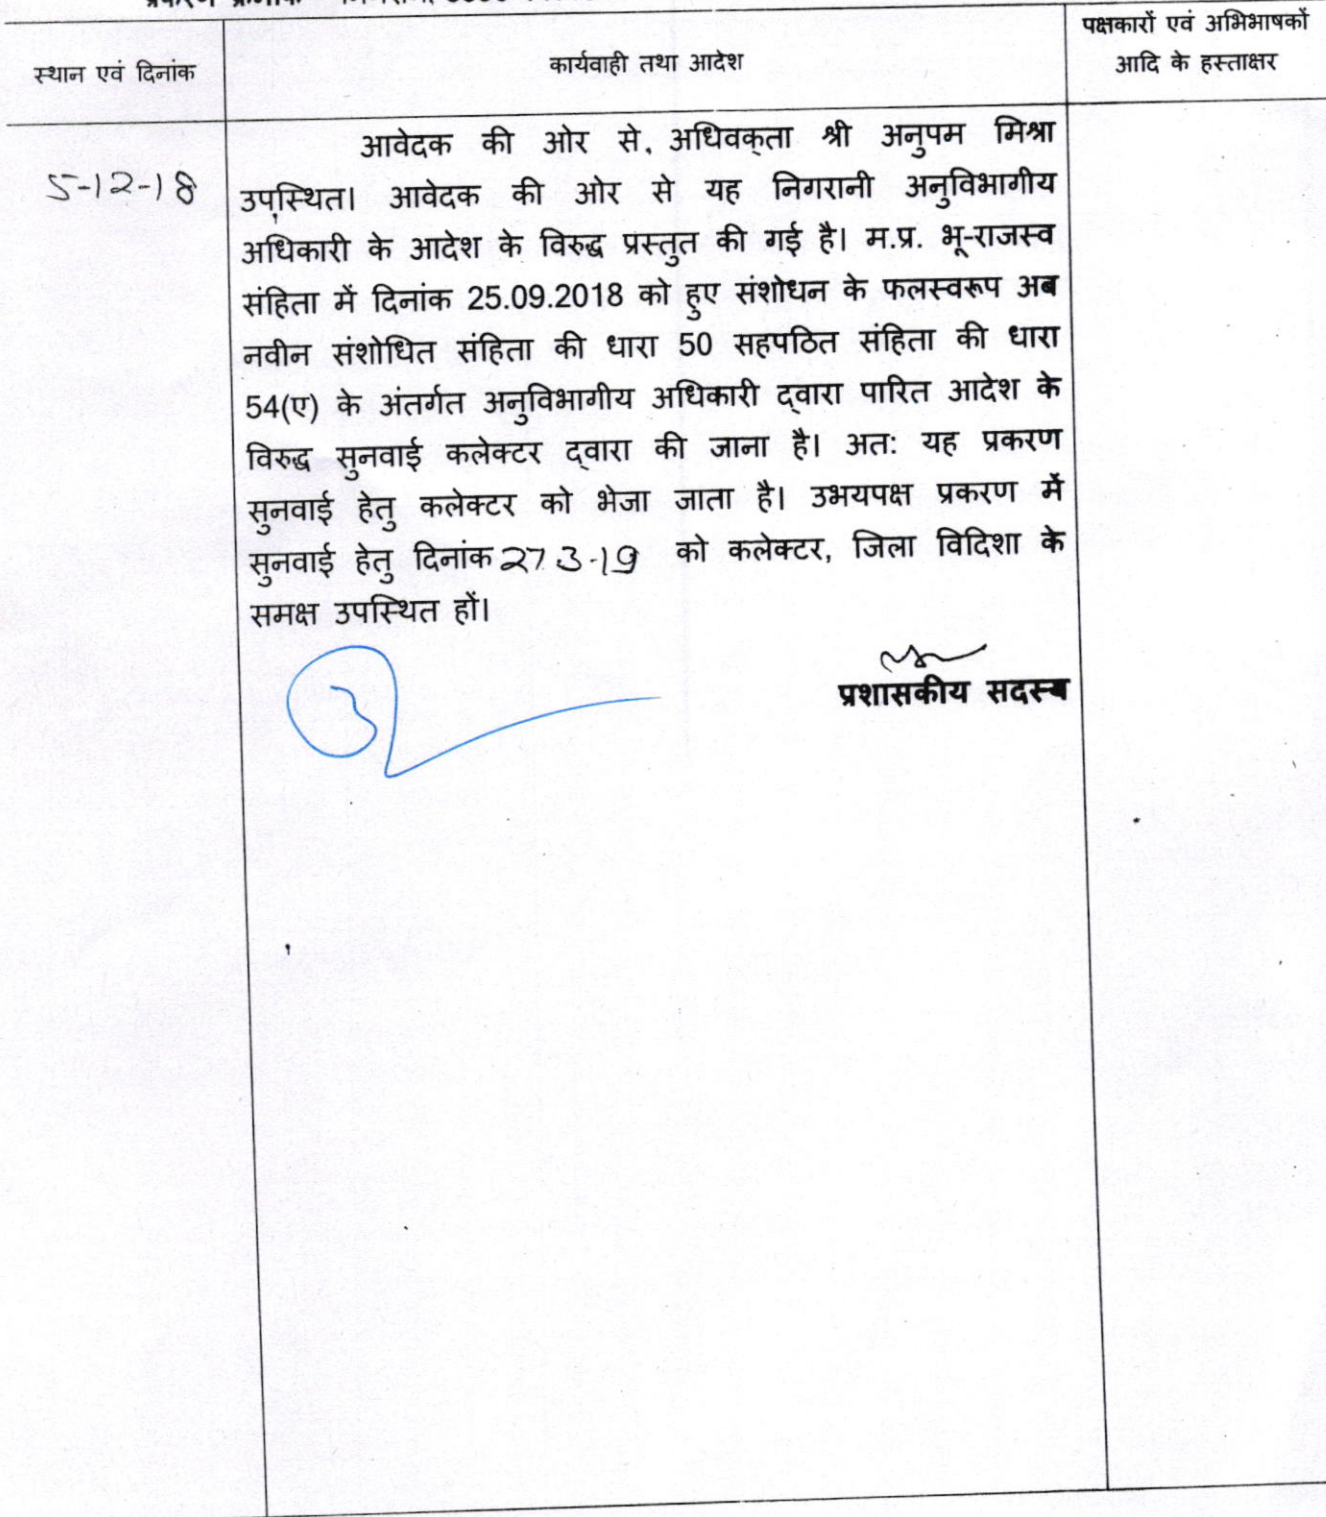 पक्षकारों एवं अभिभाषकों
स्थान एवं दिनांक कार्यवाही तथा आदेश आदि के हस्ताक्षर
आवेदक की ओर से, अधिवक्ता श्री अनुपम मिश्रा
5-12-18 उपस्थित। आवेदक की ओर से यह निगरानी अनुविभागीय
अधिकारी के आदेश के विरुद्ध प्रस्तुत की गई है। म.प्र. भू-राजस्व
संहिता में दिनांक 25.09.2018 को हुए संशोधन के फलस्वरूप अब
नवीन संशोधित संहिता की धारा 50 सहपठित संहिता की धारा
54(ए) के अंतर्गत अनुविभागीय अधिकारी द्वारा पारित आदेश के
विरुद्ध सुनवाई कलेक्टर द्वारा की जाना है। अतः यह प्रकरण
सुनवाई हेतु कलेक्टर को भेजा जाता है। उभयपक्ष प्रकरण में
सुनवाई हेतु दिनांक 27.3-19 को कलेक्टर, जिला विदिशा के
समक्ष उपस्थित हों।
प्रशासकीय सदस्य